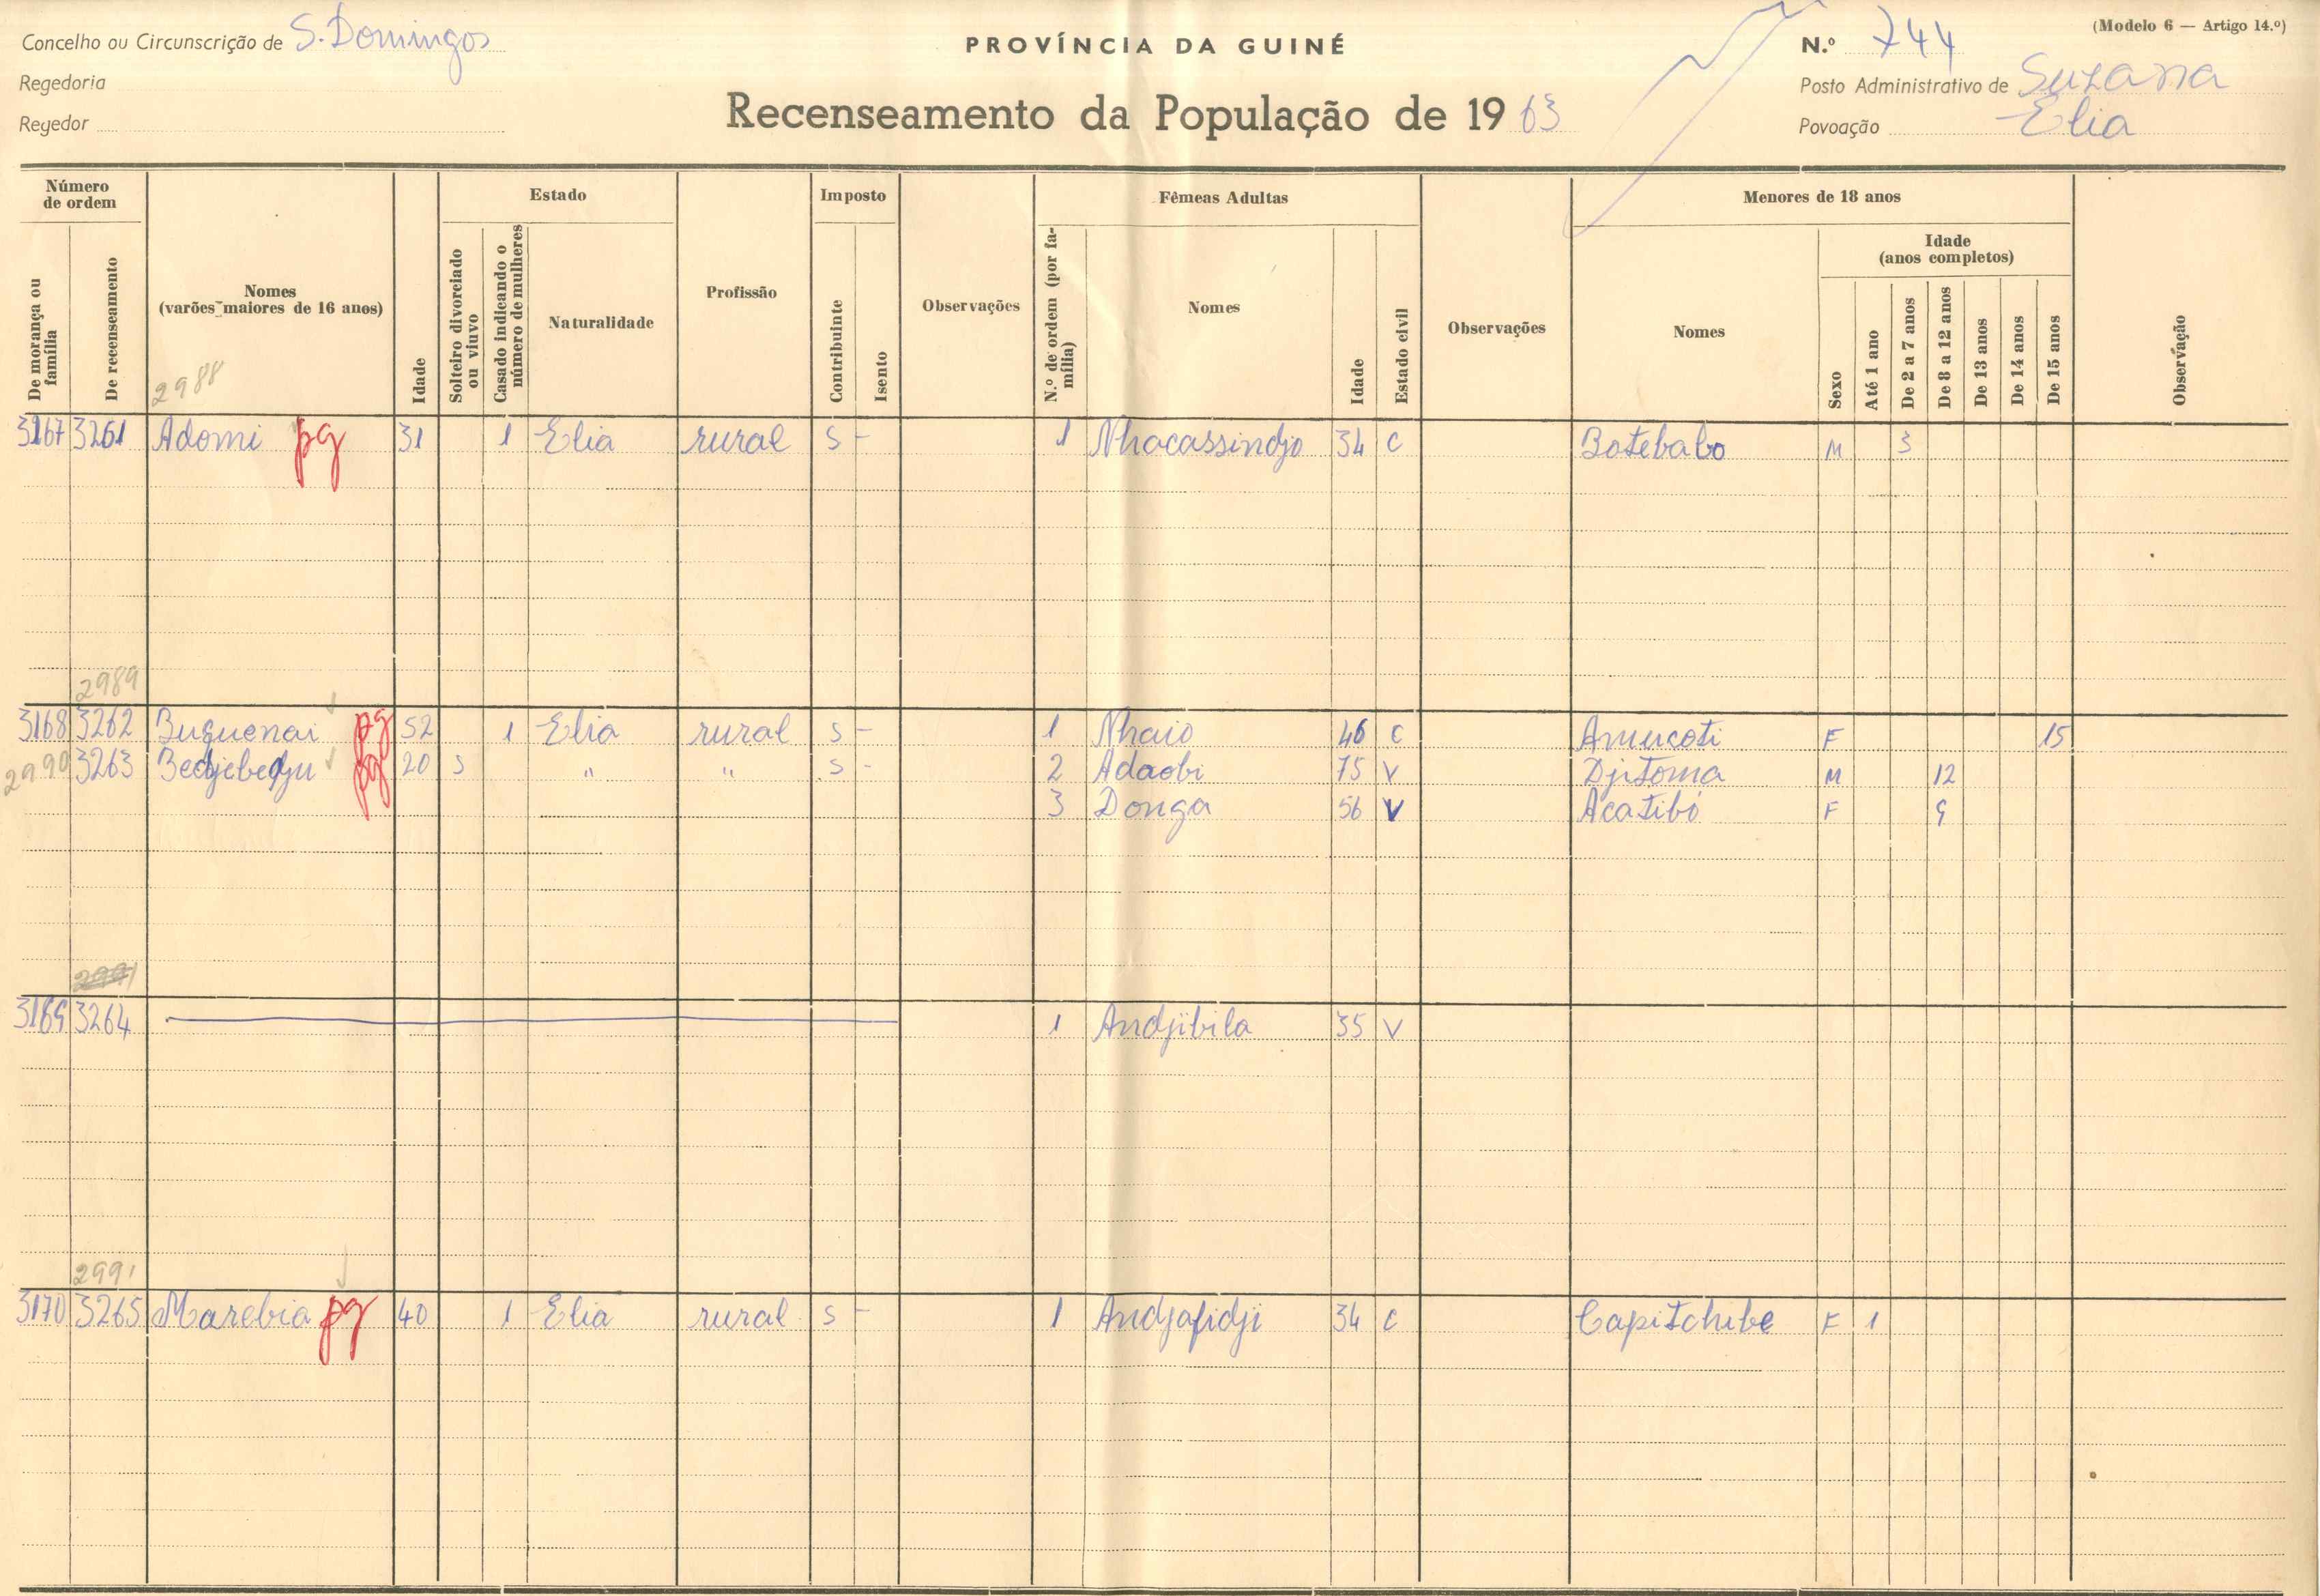 Concelho ou Circunscrição de S. Domingos
Regedoria
Regedor
PROVÍNCIA DA GUINÉ
Recenseamento da População de 1963
(Modelo 6 — Artigo 14.º)
N.º 744
Posto Administrativo de Suzana
Povoação Elia
Número de ordem
De morança ou família
De recenseamento
Nomes (varões maiores de 16 anos)
2988
Idade
Estado
Solteiro divorciado ou viuvo
Casado indicando o número de mulheres
Naturalidade
Profissão
Imposto
Contribuinte
Isento
Observações
Fêmeas Adultas
N.º de ordem (por família)
Nomes
Idade
Estado civil
Observações
Menores de 18 anos
Nomes
Sexo
Idade (anos completos)
Até 1 ano
De 2 a 7 anos
De 8 a 12 anos
De 13 anos
De 14 anos
De 15 anos
Observação
3167 3261 Adomi pg 31 1 Elia rural S - 1 Nhacassindjo 34 C Botebabo M 3
2989
3168 3262 Buguenai pg 52 1 Elia rural S - 1 Nhaio 46 C Amucoti F 15
2990 3263 Bedjebedju pg 20 S " " S - 2 Adaobi 75 V Djitoma M 12
3 Donga 56 V Acatibó F 9
2991
3169 3264 1 Andjibila 35 V
2991
3170 3265 Marebia pg 40 1 Elia rural S - 1 Andjafidji 34 C Capitchibe F 1